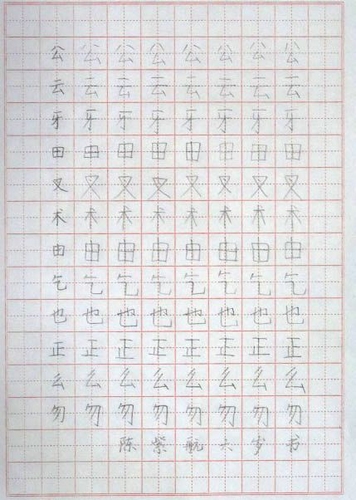 公公公公公公公公
云云云云云云云云
牙牙牙牙牙牙牙牙
田田田田田田田田
叉叉叉叉叉叉叉叉
术术术术术术术术
由由由由由由由由
乞乞乞乞乞乞乞乞
也也也也也也也也
正正正正正正正正
么么么么么么么么
勿勿勿勿勿勿勿勿
陈紫航六岁书